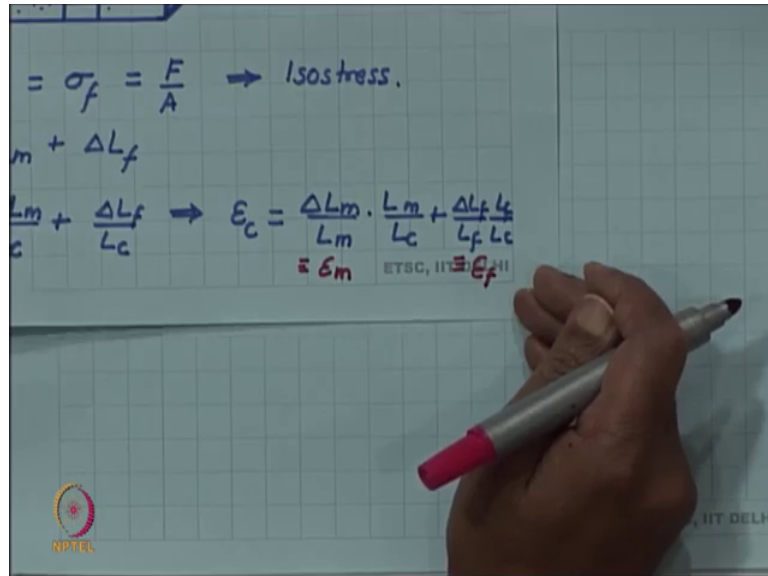 = σf = F/A → Isostress.
m + ΔLf
Lm/c + ΔLf/Lc → εc = ΔLm/Lm · Lm/Lc + ΔLf/Lf Lf/Lc
= εm ≡ εf
ETSC, IIT DELHI
, IIT DELH
NPTEL